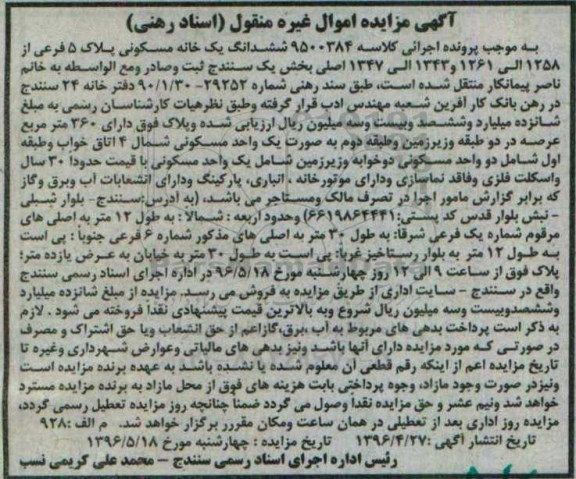 آگهی مزایده اموال غیره منقول (اسناد رهنی)
به موجب پرونده اجرائی کلاسه ۹۵۰۰۳۸۴ ششدانگ یک خانه مسکونی پلاک ۵ فرعی از
۱۲۵۸ الی ۱۲۶۱ و ۱۳۴۳ الی ۱۳۴۷ اصلی بخش یک سنندج ثبت وصادر ومع الواسطه به خانم
ناصر پیمانکار منتقل شده است، طبق سند رهنی شماره ۲۹۲۵۲- ۹۰/۱/۳۰ دفتر خانه ۲۴ سنندج
در رهن بانک کار آفرین شعبه مهندس ادب قرار گرفته وطبق نظرهیات کارشناسان رسمی به مبلغ
شانزده میلیارد وششصد وبیست وسه میلیون ریال ارزیابی شده وپلاک فوق دارای ۳۶۰ متر مربع
عرصه در دو طبقه وزیرزمین وطبقه دوم به صورت یک واحد مسکونی شمال ۴ اتاق خواب وطبقه
اول شامل دو واحد مسکونی دوخوابه وزیرزمین شامل یک واحد مسکونی با قیمت حدودا ۳۰ سال
واسکلت فلزی وفاقد نماسازی ودارای موتورخانه ، انباری، پارکینگ ودارای انشعابات آب وبرق وگاز
که برابر گزارش مامور اجرا در تصرف مالک ومستاجر می باشد، (به آدرس:سنندج- بلوار شبلی
- نبش بلوار قدس کد پستی:۶۶۱۹۸۶۴۴۴۱) وحدود اربعه : شمالاً : به طول ۱۲ متر به اصلی های
مرقوم شماره یک فرعی شرقا: به طول ۳۰ متر به اصلی های مذکور شماره ۶ فرعی جنوباً : پی است
به طول ۱۲ متر به بلوار رستاخیز غربا: پی است به طول ۳۰ متر به خیابان به عرض یازده متر؛
پلاک فوق از ساعت ۹ الی ۱۲ روز چهارشنبه مورخ ۹۶/۵/۱۸ در اداره اجرای اسناد رسمی سنندج
واقع در سنندج - سایت اداری از طریق مزایده به فروش می رسد. مزایده از مبلغ شانزده میلیارد
وششصدوبیست وسه میلیون ریال شروع وبه بالاترین قیمت پیشنهادی نقداً فروخته می شود . لازم
به ذکر است پرداخت بدهی های مربوط به آب ،برق،گازاعم از حق انشعاب ویا حق اشتراک و مصرف
در صورتی که مورد مزایده دارای آنها باشد ونیز بدهی های مالیاتی وعوارض شهرداری وغیره تا
تاریخ مزایده اعم از اینکه رقم قطعی آن معلوم شده یا نشده باشد به عهده برنده مزایده است
ونیزدر صورت وجود مازاد، وجوه پرداختی بابت هزینه های فوق از محل مازاد به برنده مزایده مسترد
خواهد شد ونیم عشر و حق مزایده نقداً وصول می گردد ضمناً چنانچه روز مزایده تعطیل رسمی گردد،
مزایده روز اداری بعد از تعطیلی در همان ساعت ومکان مقررر برگزار خواهد شد. م الف :۹۲۸
تاریخ انتشار آگهی :۱۳۹۶/۴/۲۷ تاریخ مزایده : چهارشنبه مورخ ۱۳۹۶/۵/۱۸
رئیس اداره اجرای اسناد رسمی سنندج - محمد علی کریمی نسب